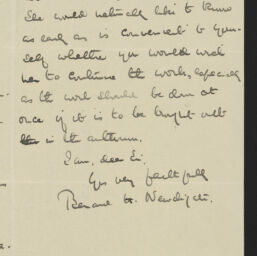 She would naturally like to know
as early as is convenient to your-
self whether you would wish
her to continue the work, especially
as the work should be done at
once if it is to be brought out
in the autumn.
I am, dear Sir,
Yrs very faithfully
Bernard H. Newdigate.
a.